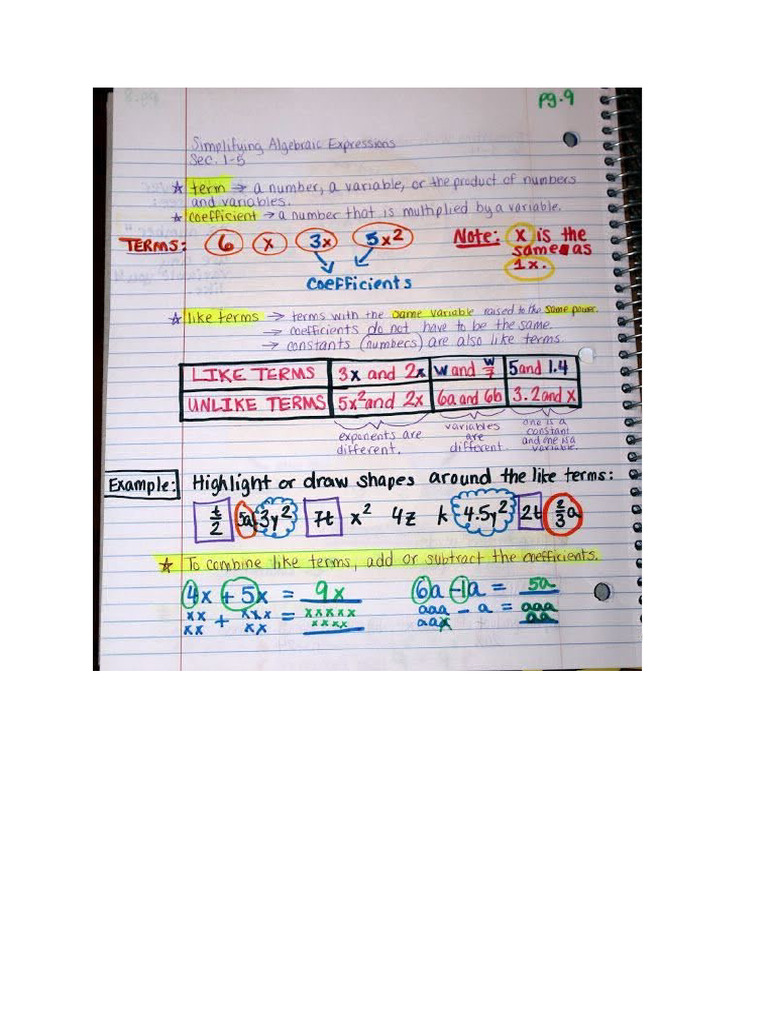 pg.9
Simplifying Algebraic Expressions
Sec. 1-5
★ term → a number, a variable, or the product of numbers
and variables.
★ coefficient → a number that is multiplied by a variable.
TERMS: 6 x 3x 5x² Note: x is the
same as
1x.
coefficients
★ like terms → terms with the same variable raised to the same power.
→ coefficients do not have to be the same.
→ constants (numbers) are also like terms.
LIKE TERMS 3x and 2x w and w/7 5 and 1.4
UNLIKE TERMS 5x² and 2x 6a and 6b 3.2 and x
exponents are different.
variables are different.
one is a constant and one is a variable.
Example: Highlight or draw shapes around the like terms:
t/2 5a 3y² 7t x² 4z k 4.5y² 2t 2/3a
★ To combine like terms, add or subtract the coefficients.
4x + 5x = 9x 6a - 1a = 5a
xx + xxx = xxxxx aaa - a = aaa
xx xx xxxx aaa aa